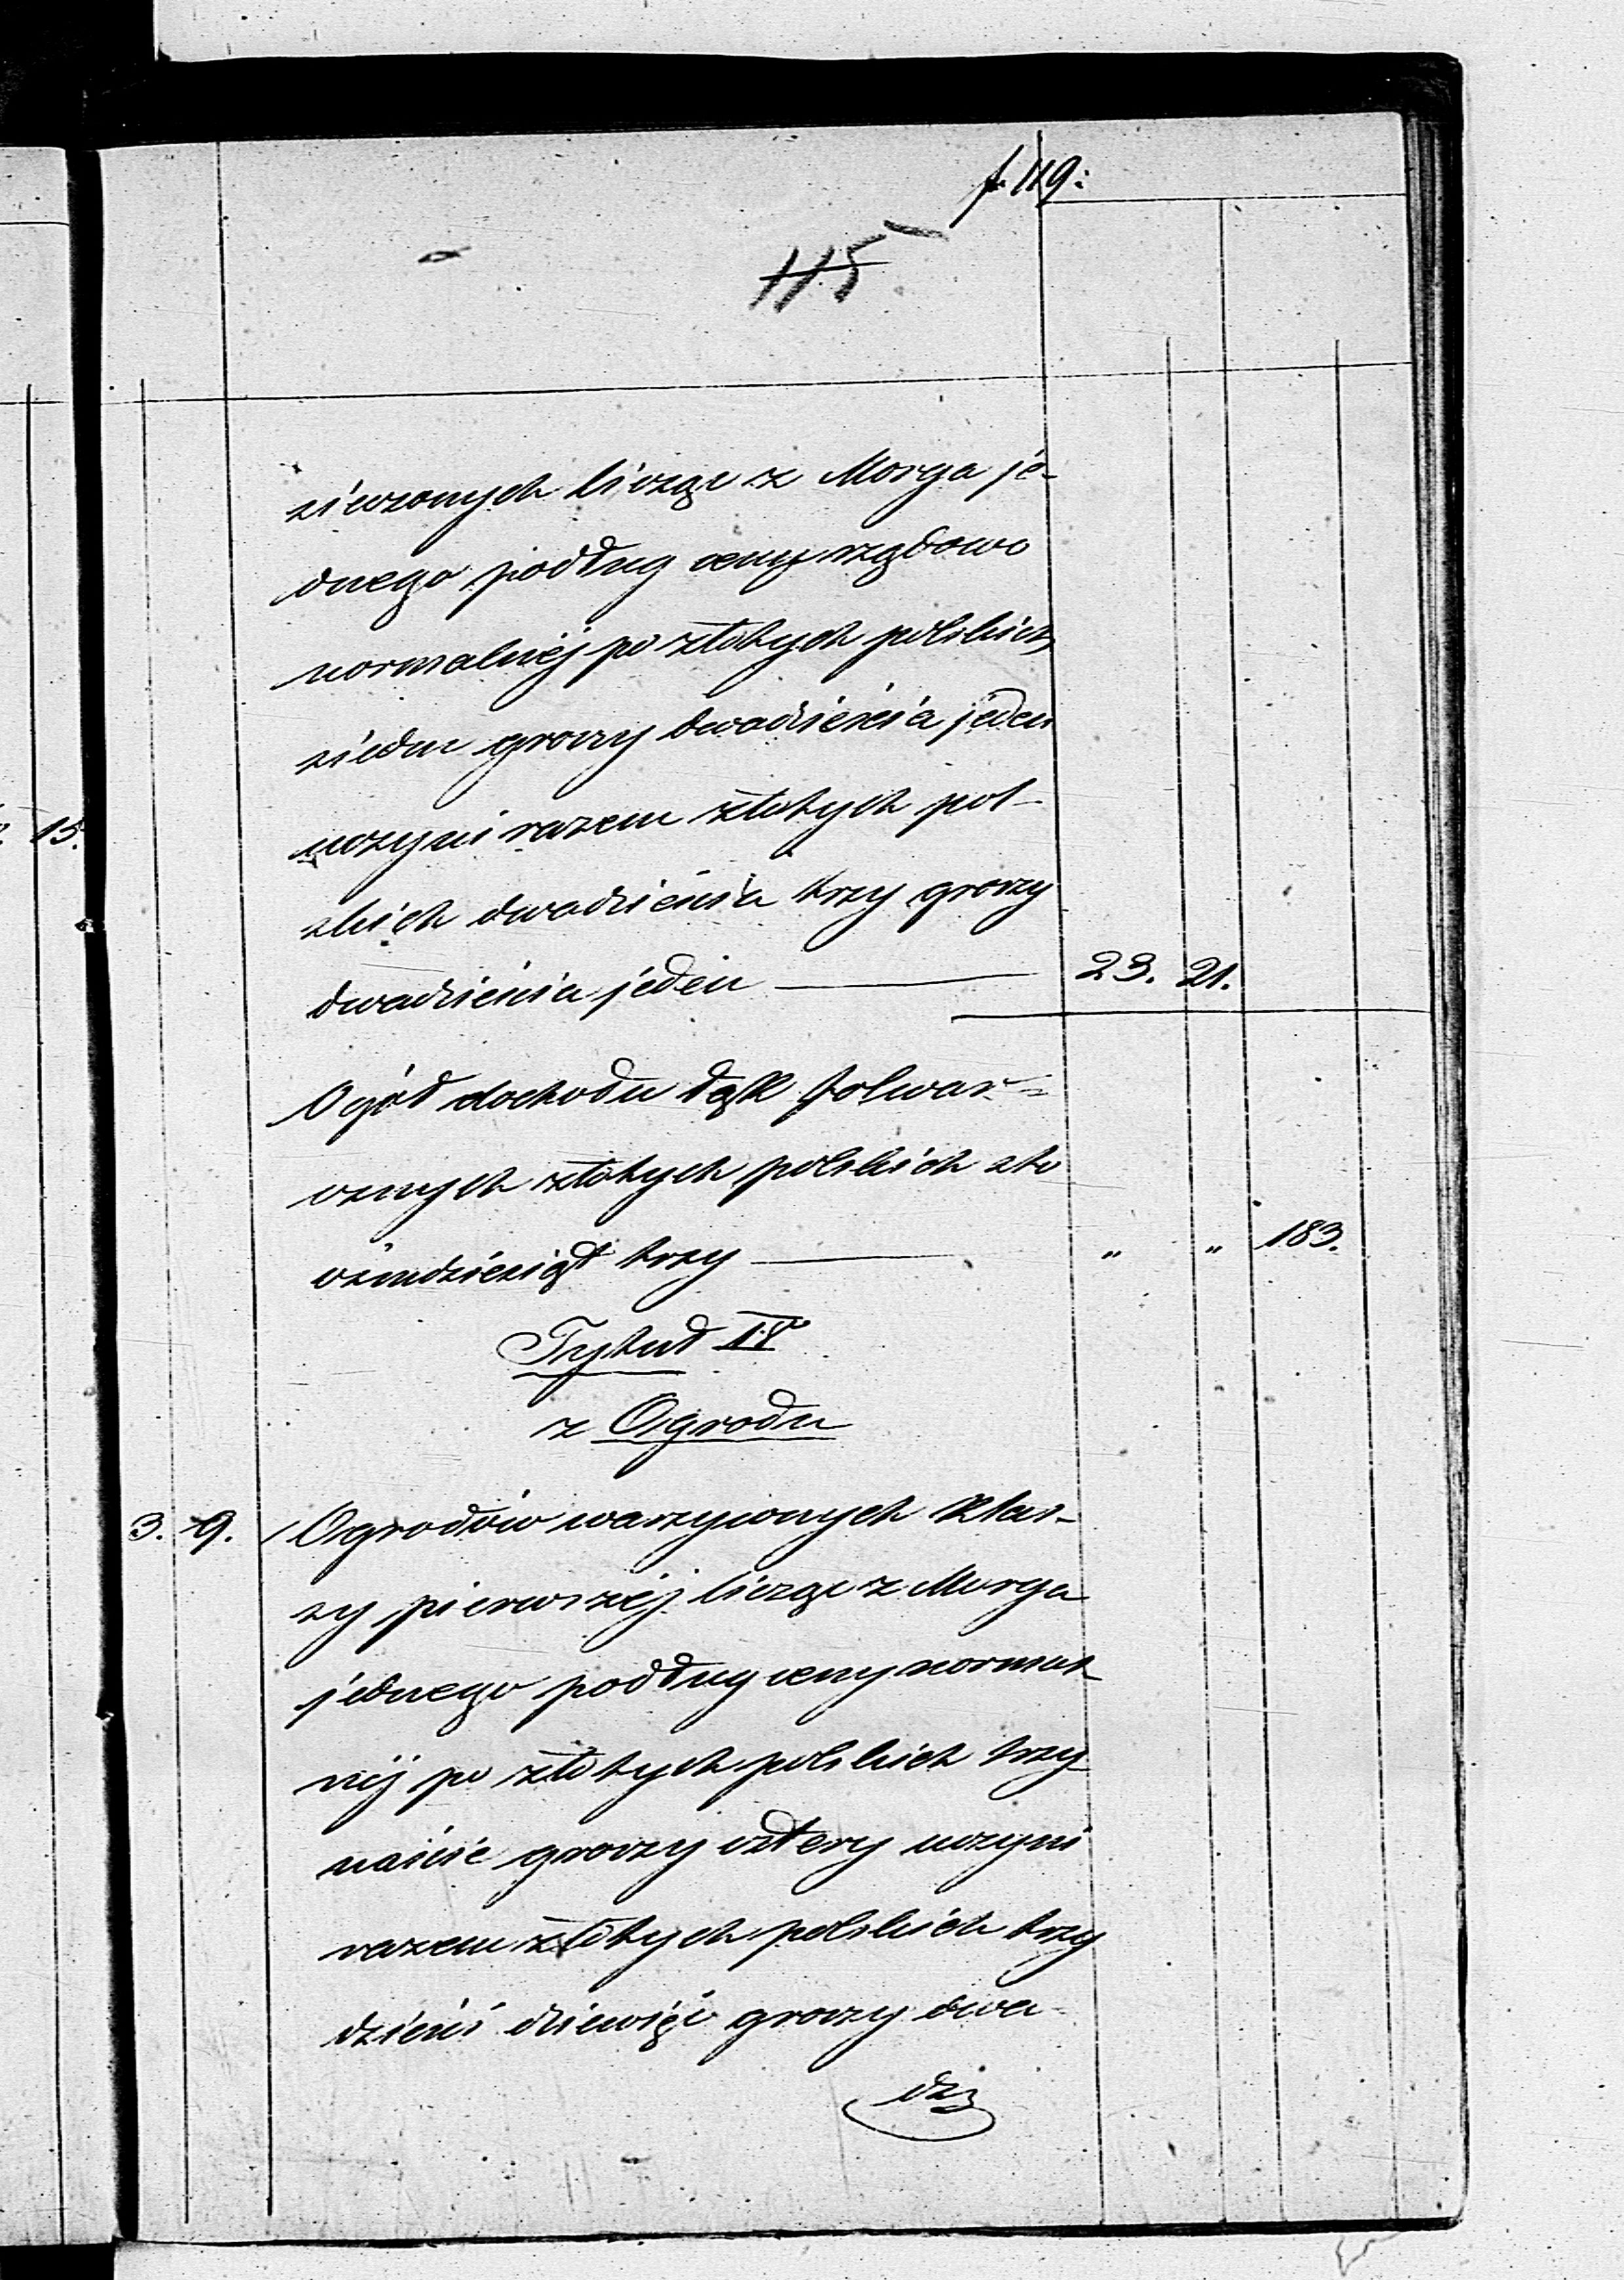 f. 119:
115
siewzonych licząc z Morga je-
dnego podług ceny rządowo
normalnéj po złotych polskich
siedm groszy dwadzieścia jeden
uczyni razem złotych pol-
skich dwadzieścia trzy groszy
dwadzieścia jeden — 23. 21.
Ogół dochodu Łąk folwar=
cznych złotych polskich sto
ośmdziesiąt trzy — " " 183.
Tytuł IV
z Ogrodu
3. 9. Ogrodów warzywnych Klas-
sy pierwszéj licząc z Morga
jednego podług ceny normal-
néj po złotych polskich trzy
naście groszy cztery uczyni
razem złotych polskich trzy
dzieści dziewięć groszy dwa-
dzie
15.